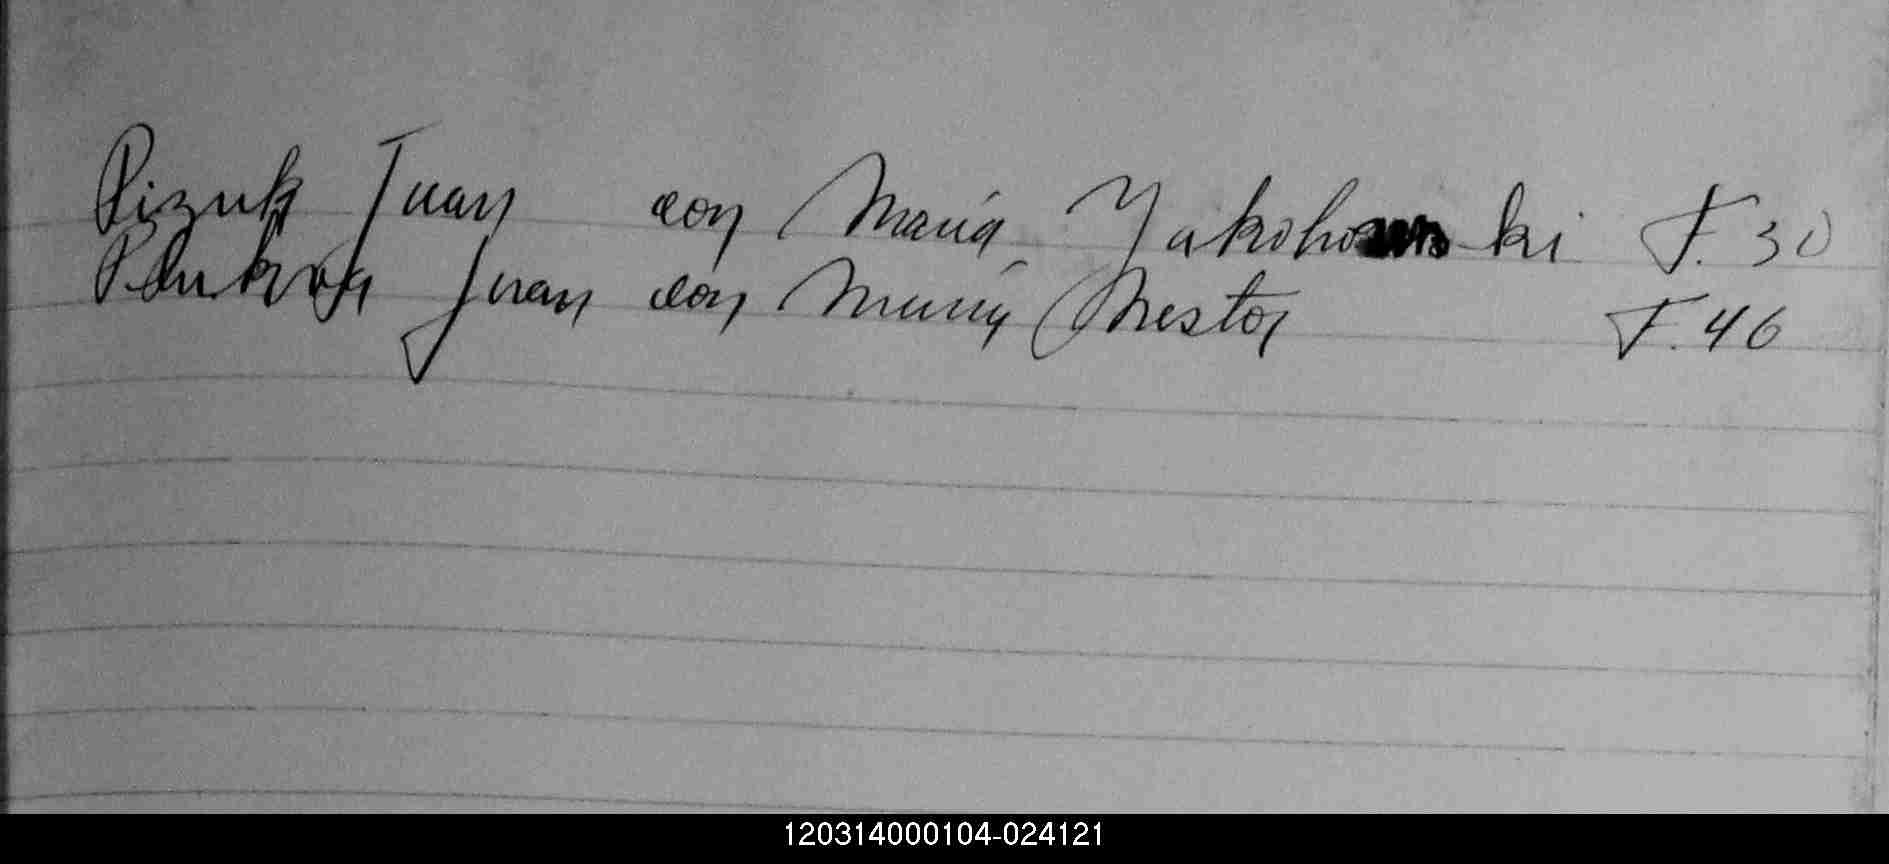 Pizuk Juan con Maria ki F. 30
Juan con Maria Nestor F. 46
120314000104-024121